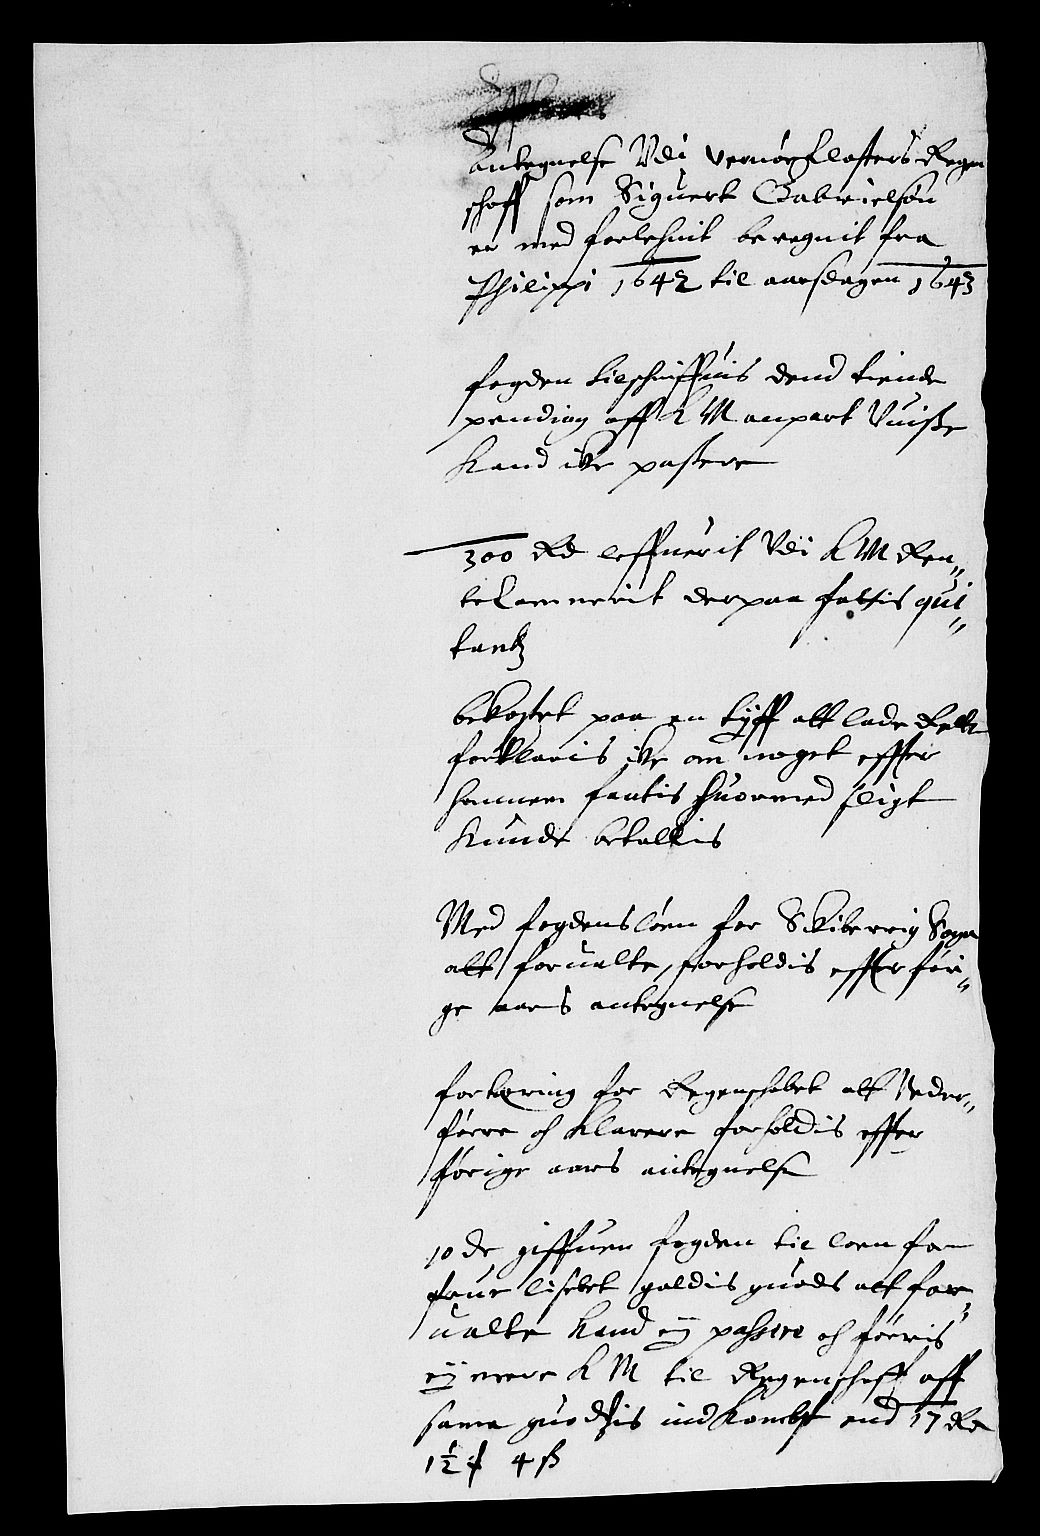 Antegnelse Vdi Vernøe Closters Regen
schaff som Siguert Gabrielsøn
er med forlehnit beregnit fra
Philippi 1642 til aarsdagen 1643
fogden tilschriffuis dend tiende
pending aff K M anpart Vuiße
Kand icke passere
300 Rd leffuerit Vdi K M Ren„
tekammerit derpaa fattis qui„
tantz
bekostet paa en tyff att lade Rette
forklaris icke om noget effter
hannem fantis huormed sligt
Kunde betallis
Med fogdens løen for Skibterrig Sogn
att forualte, forholdis effter føri„
ge aars antegnelse
fortæring for Regenschabet att Neder„
føere och Klarere forholdis effter
førige aars antegnelse
10 dr giffuen fogden til løen for
frue lisebet galdis guods att for„
ualte Kand ey passere och føeris
ey mere K M til Regenschaff aff
same guodsis indKombst end 17 Rd
1½ ß